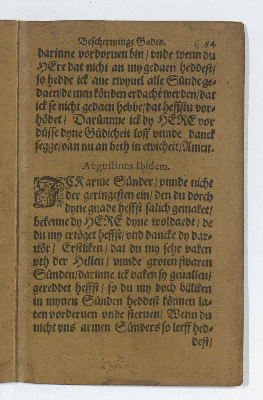 Bescherminge Gades. 54
darinne vordoruen bin / vnde wenn du
HEre dat nicht an my gedaen heddest /
so hedde ick ane twyuel alle Sünde ge-
daen / de men könden erdacht werden / dat
ick se nicht gedaen hebbe / dat heffstu vor-
hödet / Darümme ick dy HERE vor
düsse dyne Güdicheit loff vnnde danck
segge / van nu an beth in ewicheit / Amen.
Augustinus Ibidem.
ICK arme Sünder / vnnde nicht
der geringesten ein / den du dorch
dyne gnade heffst salich gemaket /
bekenne dy HERE dyne woldaedt / de
du my ertöget heffst / vnd dancke dy dar-
vör / Erstliken / dat du my sehr vaken
vth der Hellen / vnnde groten swaren
Sünden / darinne ick vaken sy geuallen /
gereddet heffst / so du my doch billiken
in mynen Sünden heddest können la-
ten vorderuen vnde steruen / Wenn du
nicht vns armen Sünders so leeff hed-
dest /